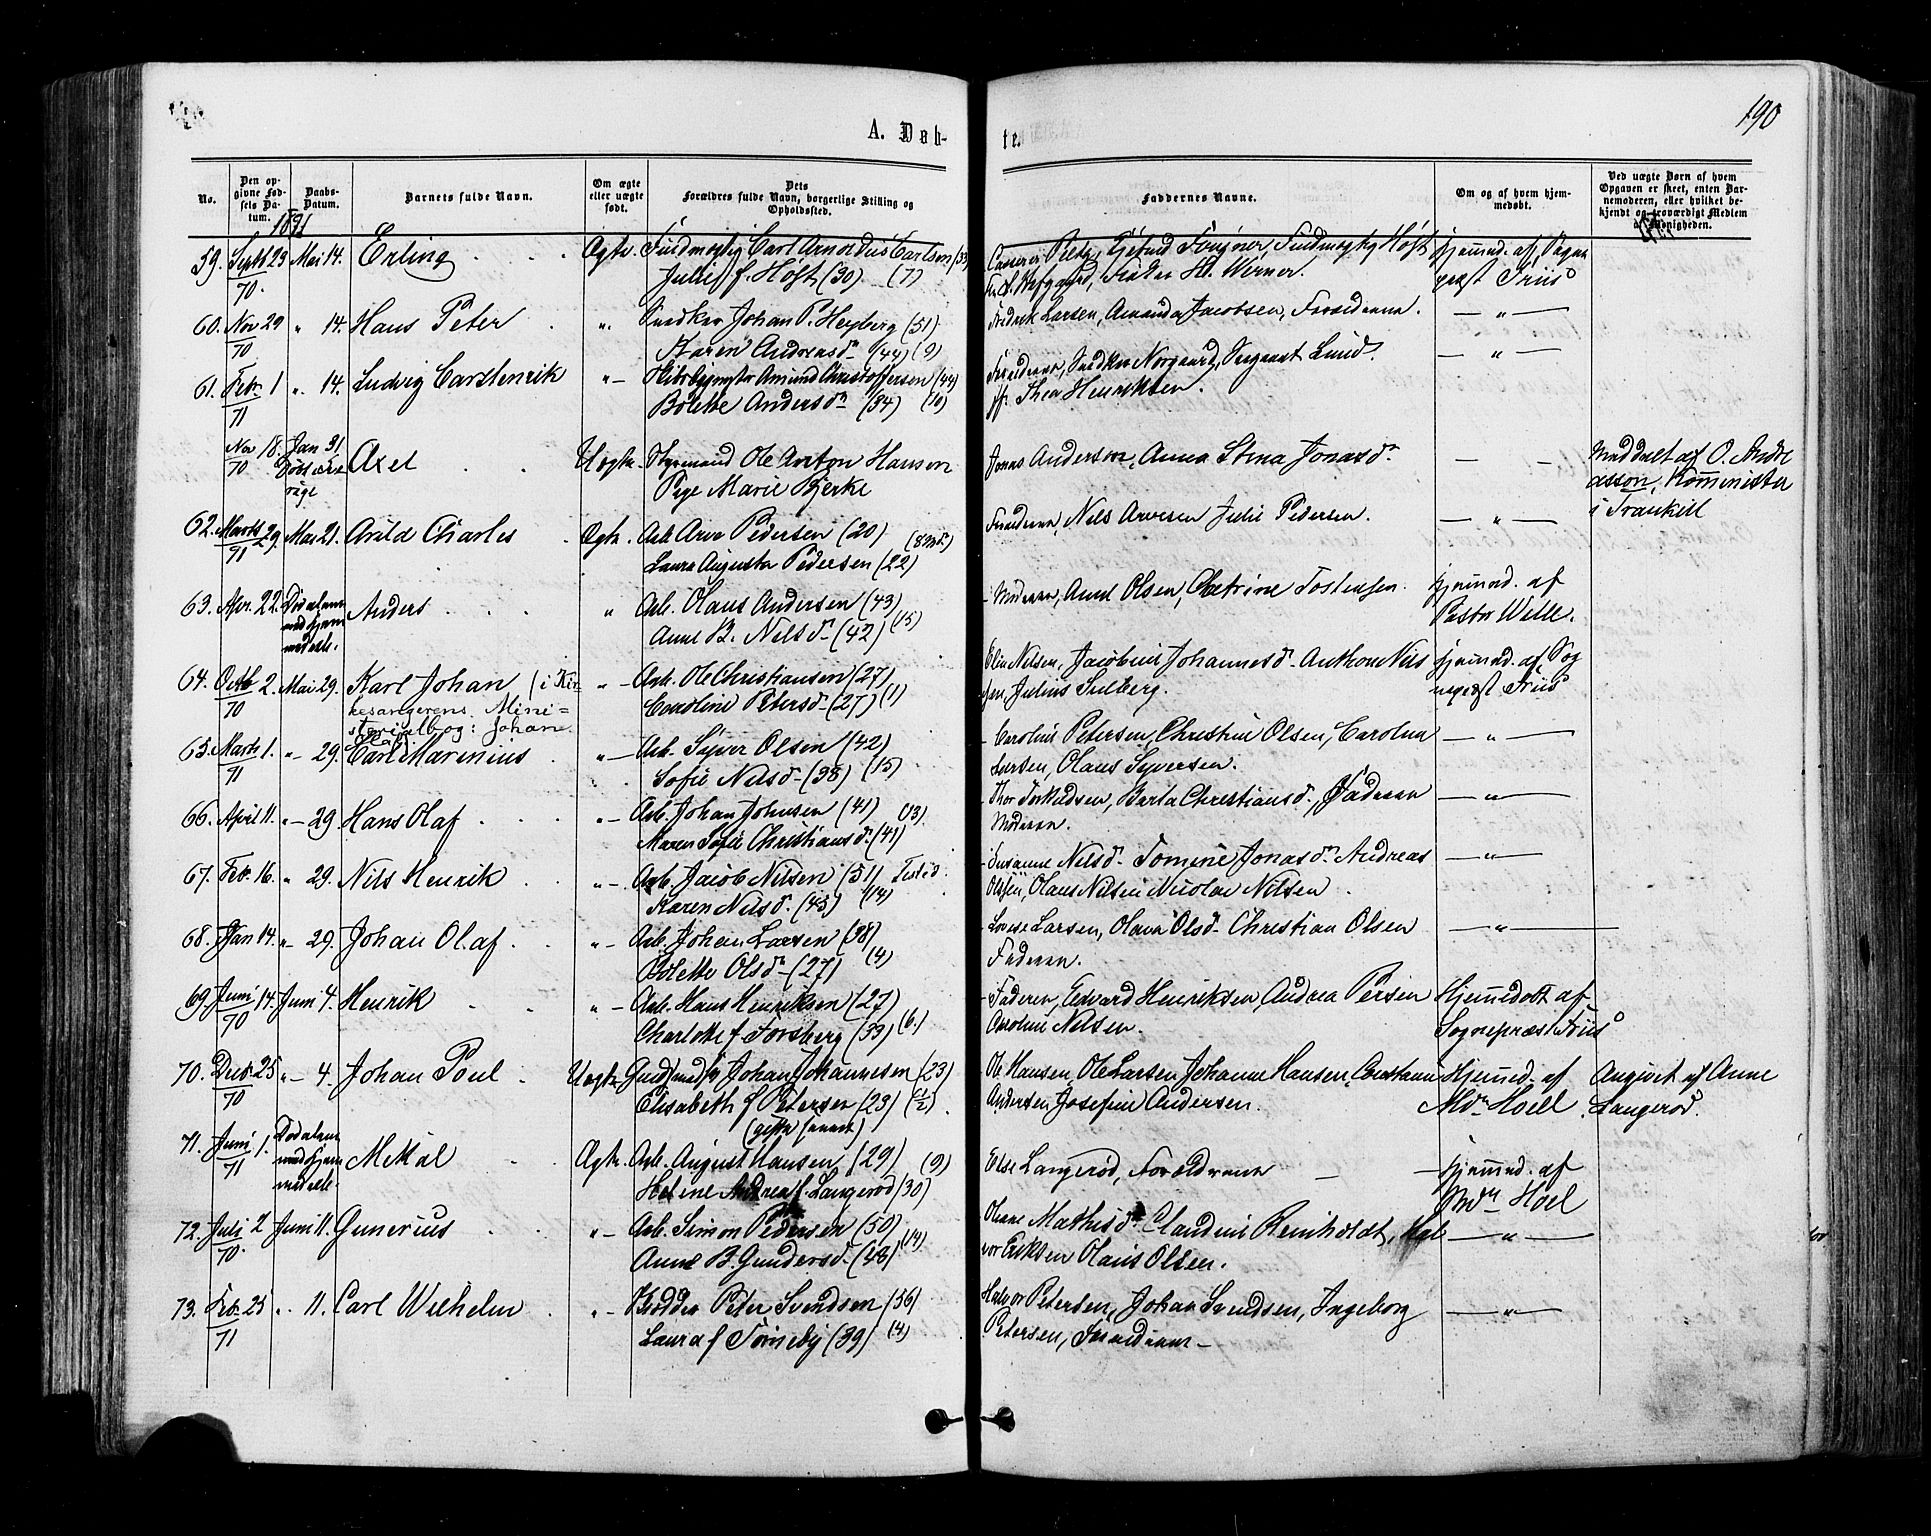 190
A. Døb-
te.
No.
Den op-
givne Fød-
sels Da-
tum.
Daabs-
Datum.
Barnets fulde Navn.
Om ægte
eller uægte
født.
Dets
Forældres fulde Navn, borgerlige Stilling og
Opholdssted.
Faddernes Navne.
Om og af hvem hjem-
medøbt.
Ved uægte Børn af hvem
Opgaven er skeet, enten Bar-
nemoderen, eller hvilket be-
kjendt og troværdigt Medlem
af Menigheden.
1871
59. Septb 23 Mai 14. Erling Ægte. Carl Arnoldus Carlsen (33)
70. Julie f. Høft (30) (7)
Høft hjemmed. af Sogne
Fru Werner. præst Friis
60. Nov 29 " 14. Hans Peter ". Snedker Johan P. Heyberg (51) Fredrik Larsen, Amanda Jacobsen, Forældrene. — " —
70 Karen Andreasd. (44) (9)
61. Febr. 1 ". 14. Ludvig Carstenrik " — Amund Christoffersen (44) Forældrene, Snedker Norgaard, Sergeant Lund. — " —
71 Bolette Andersd. (34) (10) Thea Henriksen.
Nov 18. Jan 31 Axel Uægte. Styrmand Ole Anton Hansen Jonas Anderson, Anna Stina Jonasd. — — Meddelt af O. Andre
70 Døbt i Sve- Pige Marie Bjerke asson, Komminister
rige i Trankil
62. Marts 29. Mai 21. Arild Charles Ægte. Arb. Arve Pedersen (20) (8 Md.) Forældrene, Nils Arvesen Julie Pedersen. — " —
71 Laura Augusta Pedersen (22)
63. Apr. 22. Død alene Anders " Arb. Olaus Andersen (43) Moderen, Anne Olsen, Cathrine Tostensen. hjemmed. af
med hjem- Anne B. Nilsd. (42) (15) Pastor Welle.
med. døb.
64. Octb 2. Mai 29. Karl Johan (i Kir- " — Arb. Ole Christiansen (27) Elin Nilsen, Jacobine Johannesd. Anthon Nils hjemmed. af Sog
70 kesangerens Mini- Caroline Petersd. (27) (1) sen, Julius Sulberg. nepræst Friis
sterialbog: Johan
65. Marts 1. " — 29. Carl Marinius " — Arb. Syver Olsen (42) Caroline Petersen, Christine Olsen, Carolina — " —
71 Sofie Nilsd. (38) (15) Larsen, Olaus Syversen.
66. April 11. " — 29. Hans Olaf " — Arb. Johan Johnsen (41) (13) Thor Torkildsen, Berta Christiansd., Faderen — " —
Maren Sofie Christiansd. (41) Moderen.
67. Feb. 16. " 29. Nils Henrik " —. Arb. Jacob Nilsen (51) Tisted. Susanne Nilsd. Tomine Jonasd. Andreas — " —
Karen Nilsd. (43) (14) Olsen, Olaus Nilsen Nicolai Nilsen.
68. Jan 14. " — 29. Johan Olaf. " — Arb. Johan Larsen (38) Lovise Larsen, Olava Olsd. Christian Olsen — " —
Bolette Olsd. (27) (4) Faderen.
69. Juni 14. Juni 4. Henrik " — Arb. Hans Henriksen (27) Faderen, Edvard Henriksen, Andrea Persen Hjemmedøbt af
70 Charlotte f. Forsberg (33) (6.) Caroline Nilsen. Sognepræst Friis
70. Decb. 25 " — 4. Johan Poul Uægte Johan Johannesen (23) Ole Hansen, Ole Larsen Johanne Hansen, Hjemmed. af Angivet af Anne
70 Elisabeth f. Petersen (23) Andersen, Josefine Andersen. Mdr. Hoel Langerød.
(gifte senere)
71. Juni 1. Død alene Mikal Ægte. Arb. August Hansen (29) (9) Else Langerød, Forældrene — hjemmed. af
71 med hjem- Heline Andrea f. Langerød (30) Mdr. Hoel
med. døb.
72. Juli 2 Juni 11. Gunerius " — Arb. Simon Pedersen (50) Oliane Mathisd. Claudine Reinholdt, Hal — " —
70. Anne B. Gundersd. (48) (14) vor Eriksen Olaus Olsen.
73. Feb. 25 ". 11. Carl Wilhelm " — Bødker Peter Svendsen (36) Halvor Petersen, Johan Svendsen, Ingeborg — " —
71 Laura f. Torneby (39) (4) Petersen, Forældrene —